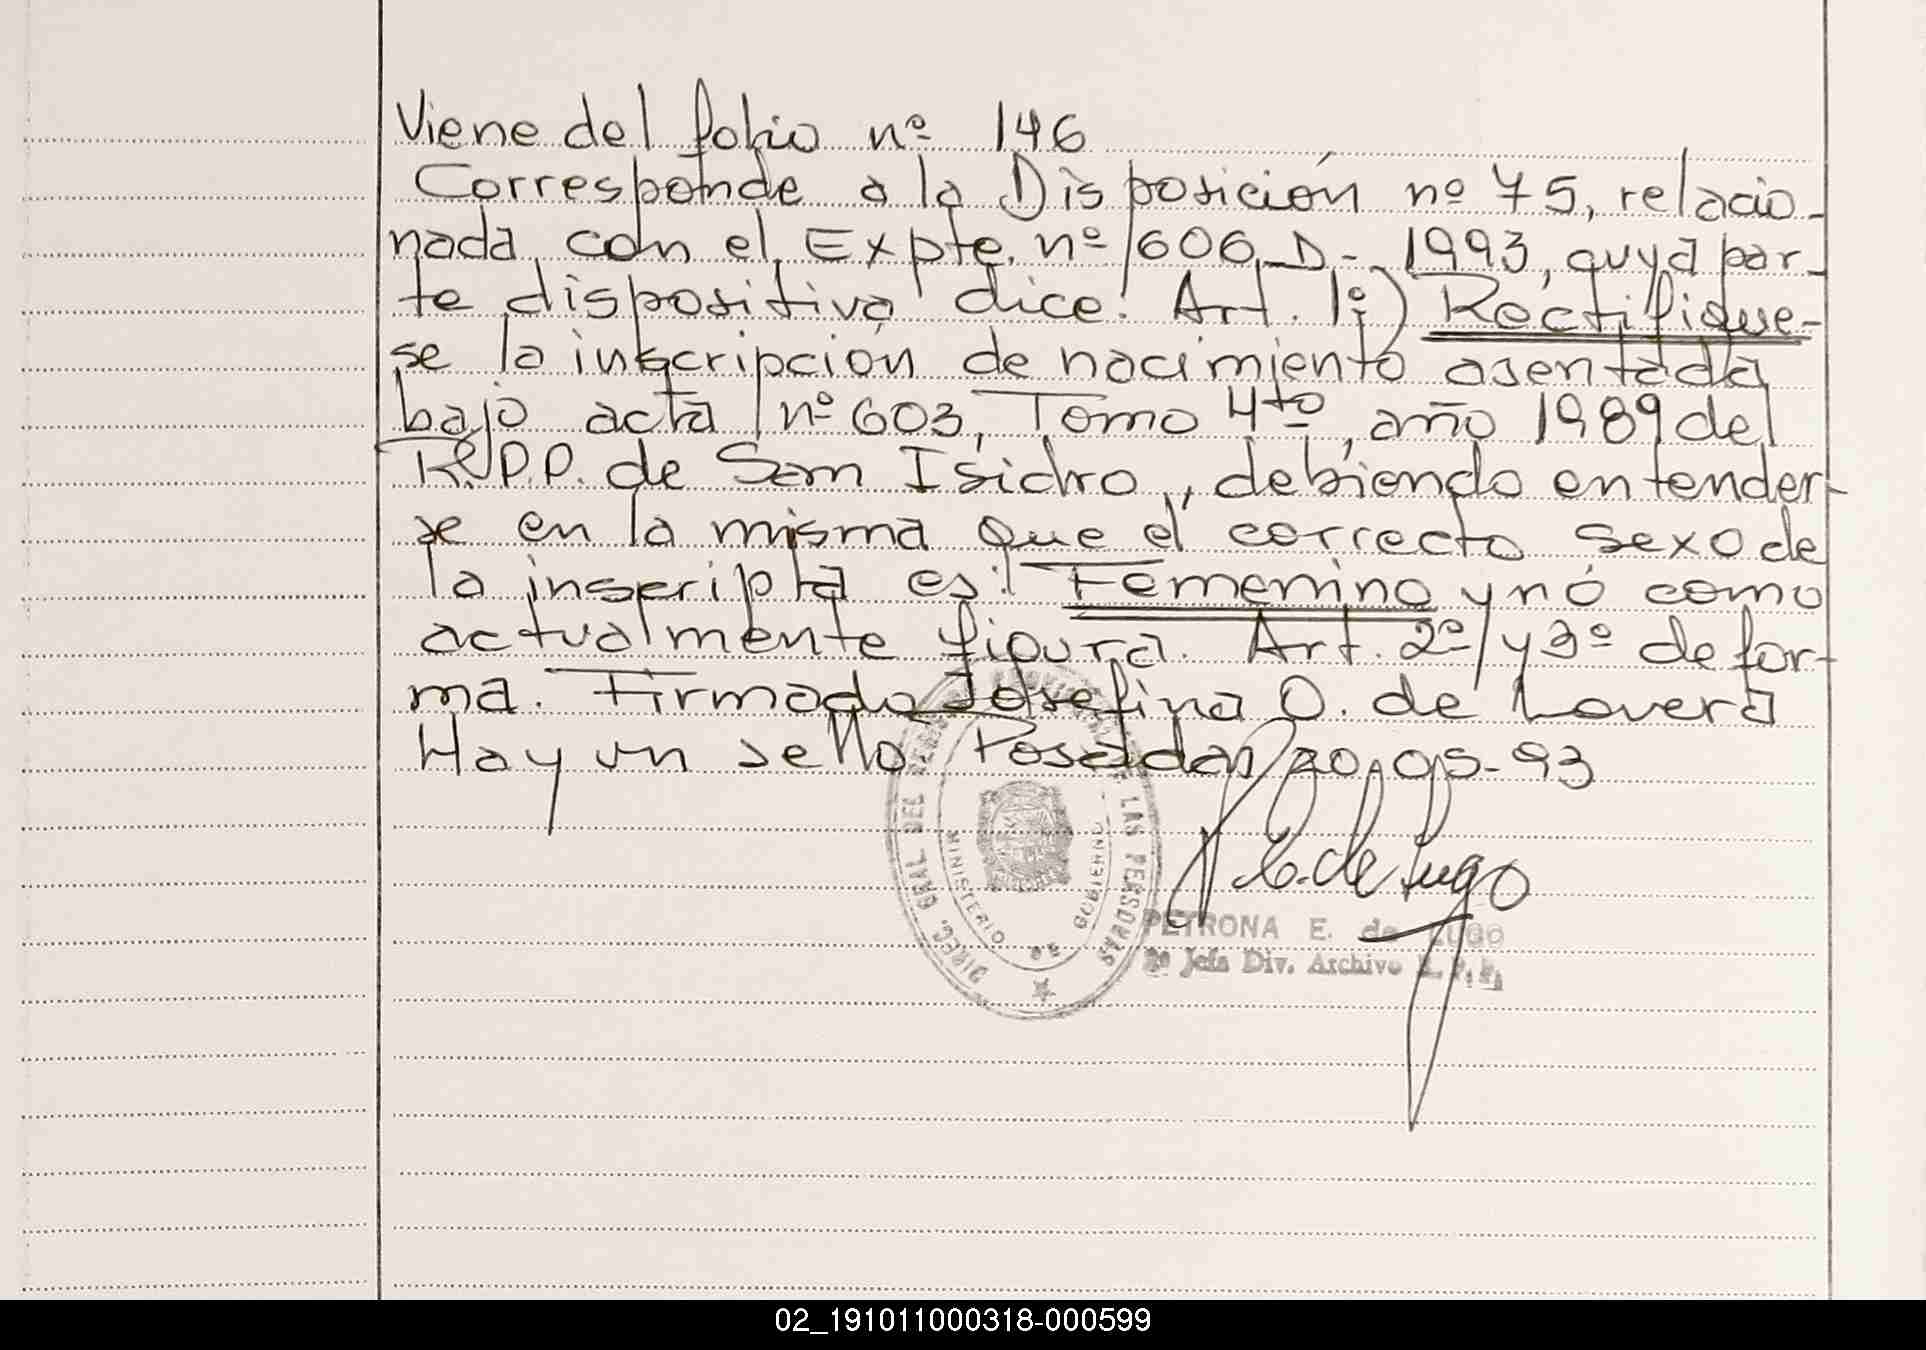 Viene del folio nº 146
Corresponde a la Disposición nº 75, relacio-
nada con el Expte. nº 1606-D-1993, cuya par-
te dispositiva dice: Art. 1º) Rectifique-
se la inscripción de nacimiento asentada
bajo acta nº 603, Tomo 4to, año 1989 del
R.P.P. de San Isidro, debiendo entender-
se en la misma que el correcto sexo de
la inscripta es: Femenino y no como
actualmente figura. Art. 2º y 3º de for-
ma. Firmado Josefina O. de Lovera
Hay un sello Posadas 20-05-93
DIREC. GRAL DEL REG. PROVINCIAL DE LAS PERSONAS
MINISTERIO DE GOBIERNO
E. de Lugo
PETRONA E. de LUGO
2º Jefa Div. Archivo R. P. P.
02_191011000318-000599